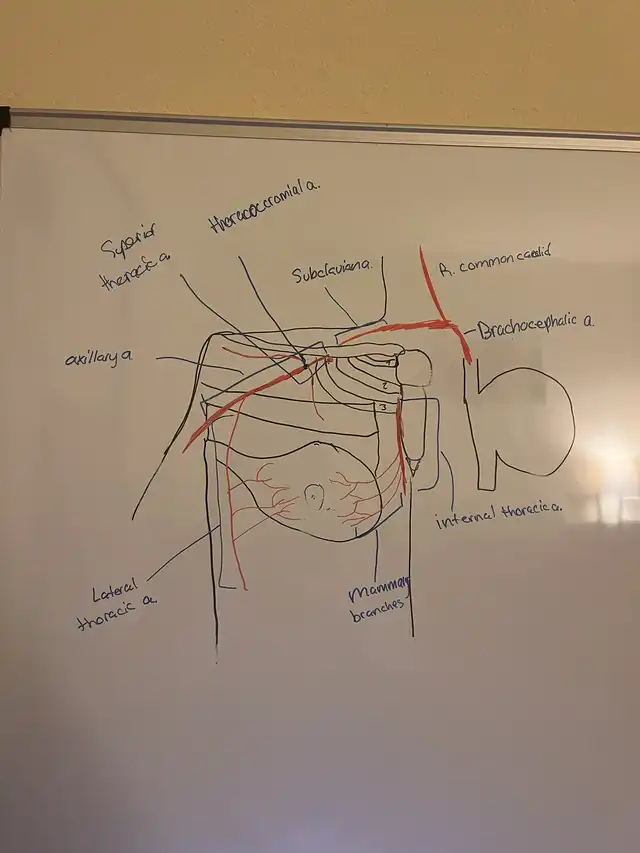 thoracoacromial a.
Superior
thoracic a.
Subclavian a.
R. common carotid
Brachocephalic a.
axillary a
1
2
3
internal thoracic a.
Lateral
thoracic a
Mammary
branches